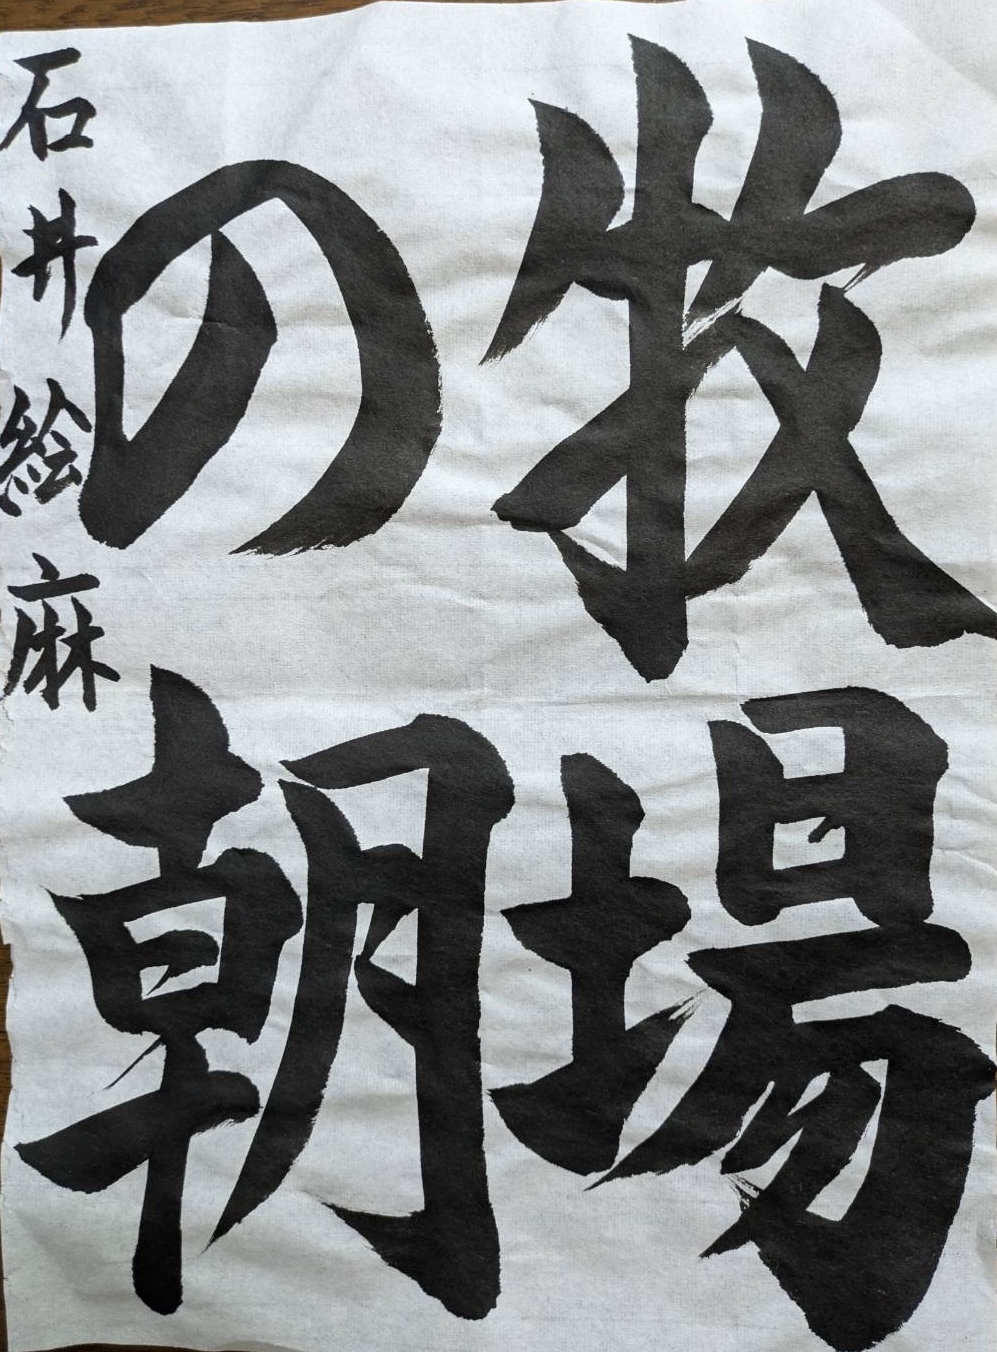 牧場
の朝
石井絵麻